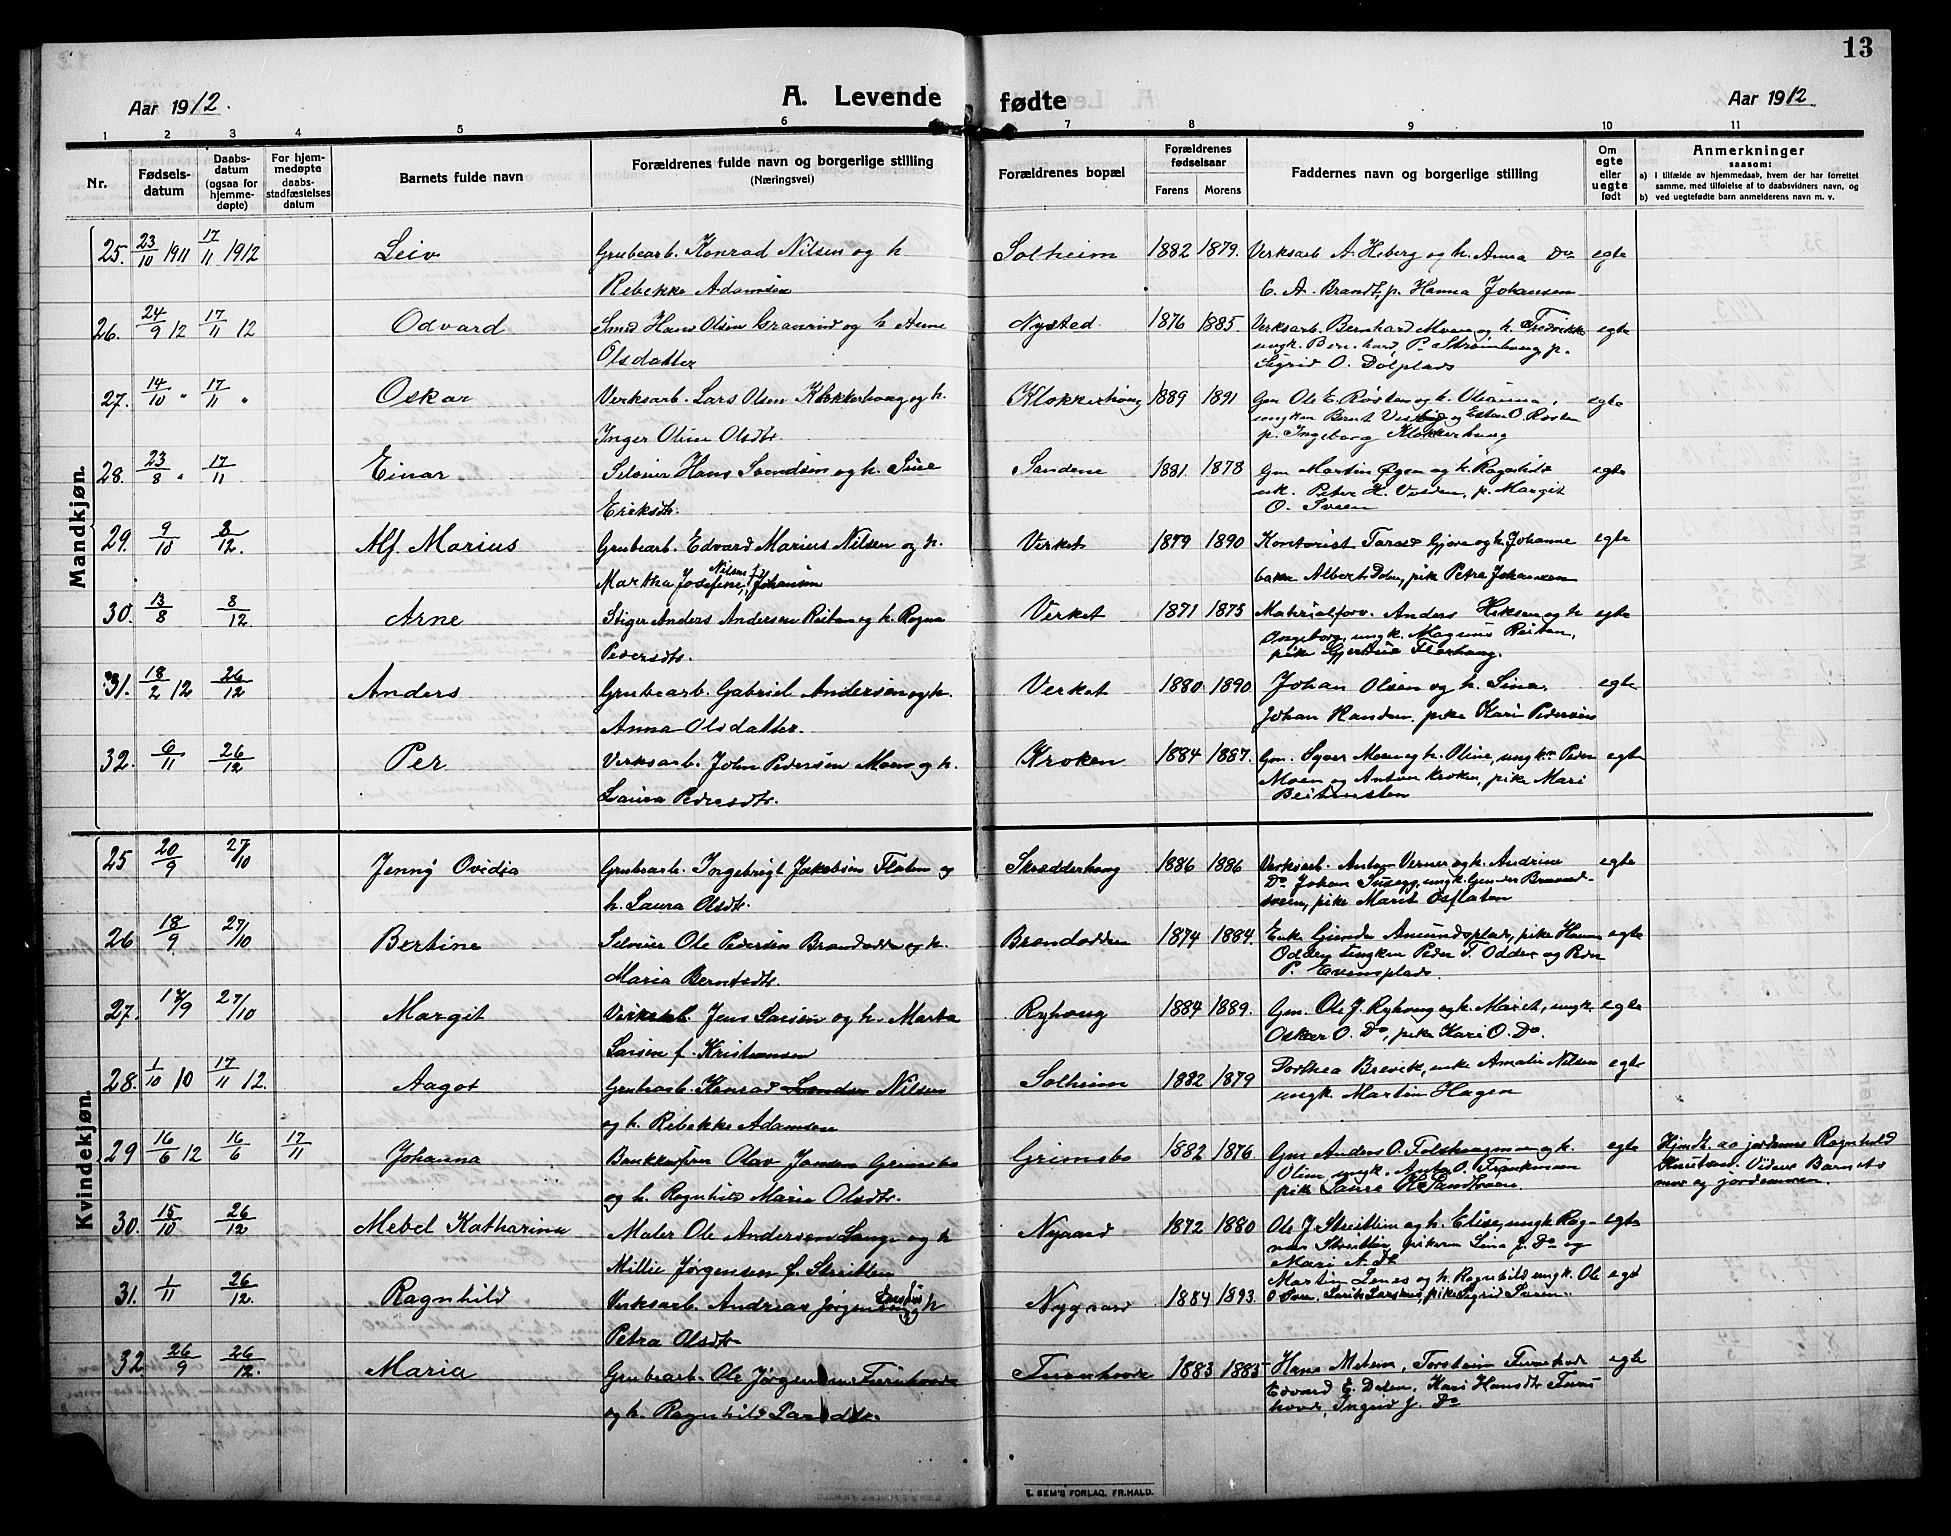 13
Aar 1912.
A. Levende fødte
Aar 1912
1 2 3 4 5 6 7 8 9 10 11
Nr.
Fødsels-
datum
Daabs-
datum
(ogsaa for
hjemme-
døpte)
For hjem-
medøpte
daabs-
stadfæstelses
datum
Barnets fulde navn
Forældrenes fulde navn og borgerlige stilling
(Næringsvei)
Forældrenes bopæl
Forældrenes
fødselsaar
Farens Morens
Faddernes navn og borgerlige stilling
Om
egte
eller
uegte
født
Anmerkninger
saasom:
a) i tilfælde av hjemmedaab, hvem der har forrettet
samme, med tilføielse af to daabsvidners navn, og
b) ved uegtefødte barn anmelderens navn m. v.
Mandkjøn.
25. 23/10 1911 17/11 1912 Leiv Grubearb. Konrad Nilsen og h Solheim 1882 1879. Verksarb A. Heberg og h. Anna Do egte
Rebekke Adamsen C. A. Brandt, p. Hanna Johansen
26. 24/9 12 17/11 12 Odvard Smed Hans Olsen og h Nysted. 1876 1885. Verksarb. Bernhard Moen og h. Fredrikke egte
Olsdatter ungk. Bernhard P. p.
Sigrid O. Dolplads
27. 14/10 " 17/11 " Oskar Verksarb. Lars Olsen Klokkerhaug og h. Klokkerhaug 1889 1891 Gm Ole E. Røsten og h. Oleanna, egte
Inger Oline Olsdtr. ungken Bernt og Esten O. Røsten
p. Ingeborg Klokkerhaug
28. 23/8 " 17/11 Einar Hans Svendsen og h. Sine Sandene 1881. 1878 Gm Martin Øyen og h. Ragnhild egte
Eriksdtr. uk. Peter H. Volden, p. Margit
O. Sveen
29. 9/10 8/12. Alf Marius Grubearb. Edvard Marius Nilsen og h. Verket 1879 1890 Kontorist Gjøra og h. Johanne egte
Martha Josefine Nilsen f. Johansen baker Albert Dolen, pike Petra Johansen
30. 13/8 8/12 Arne Stiger Anders Andersen Reitan og h. Ragna Verket 1871 1875 Materialforv. Anders og h egte
Pedersdtr. Ingeborg, ungk. Magnus Reitan,
pike Gjertrud
31. 18/2 12 26/12 Anders Grubearb. Gabriel Andersen og h. Verket 1880 1890 Johan Olsen og h. Sina, egte
Anna Olsdatter. Johan Randen, pike Kari Pedersen
32. 6/11 26/12 Per Verksarb. John Pedersen Moen og h. Kroken 1884 1887. Gm. Syver Moen og h. Oline, ungkn Peder egte
Laura Pedersdtr. Moen og Anton Kroken, pike Mari
Kvindekjøn.
25 20/9 27/10 Jenny Ovidia Grubearb. Ingebrigt Jakobsen Flaten og Skrædderhaug 1886 1886 Verksarb. Anton Verner og h. Andrine egte
h. Laura Olsdtr. Do Johan ungk.
pike Marit Osflaten
26 18/9 27/10 Bertine Ole Pedersen Brandodden og h. Brandodden 1874 1884. Enke Gunder Amundsplads, pike Hanna egte
Maria Berntsdtr. Odden ungken Peder T. Odden og Peder
P. Evensplads.
27. 17/9 27/10 Margit Verksarb. Jens Larsen og h. Marta Ryhaug 1884 1889. Gm. Ole J. Ryhaug og h. Marit, ungk. egte
Larsen f. Kristiansen Oskar O. Do, pike Kari O. Do
28. 1/10 10 17/11 12. Aagot Grubearb. Konrad Nilsen Solheim 1882 1879 Dorthea Brevik, enke Amalie Nilsen egte
og h. Rebekke Adamsen ungk. Martin Hagen
29 16/6 12 16/6 17/11 Johanna Olav Jansen Grimsbo Grimsbo 1882 1876 Gm Anders O. og h. egte Hjmdt. av jordmor Ragnhild
og h. Ragnhild Maria Olsdtr. Oline, ungk. Knutsen. Vidner Barnets
pike Laura mor og jordmoren.
30. 15/10 26/12 Mebel Katharina Maler Ole Andersen Lange og h Nygaard 1872 1880 Ole J Streitlien og h. Elise, ungk Rag- egte
Millie Jørgensen f. Streitlien nar Streitlien, pikerne Sina J. Do og
Mari N. Do
31. 1/11 26/12. Ragnhild Verksarb. Andreas Jørgensen og h Nygaard 1884 1893. Martin Lenes og h. Ragnhild ungk. Ole egt
Petra Olsdtr pike Sigrid
32 26/9 26/12. Maria Grubearb. Ole Jørgensen Furuhovde Furuhovde 1883 1885 Hans Moen, Torstein Furuhovde egte
og h. Ragnhild Edvard E. Dolen, Kari Hansdtr Furu
hovde, Ingrid J. Do
E. SEM'S FORLAG, FR.HALD.